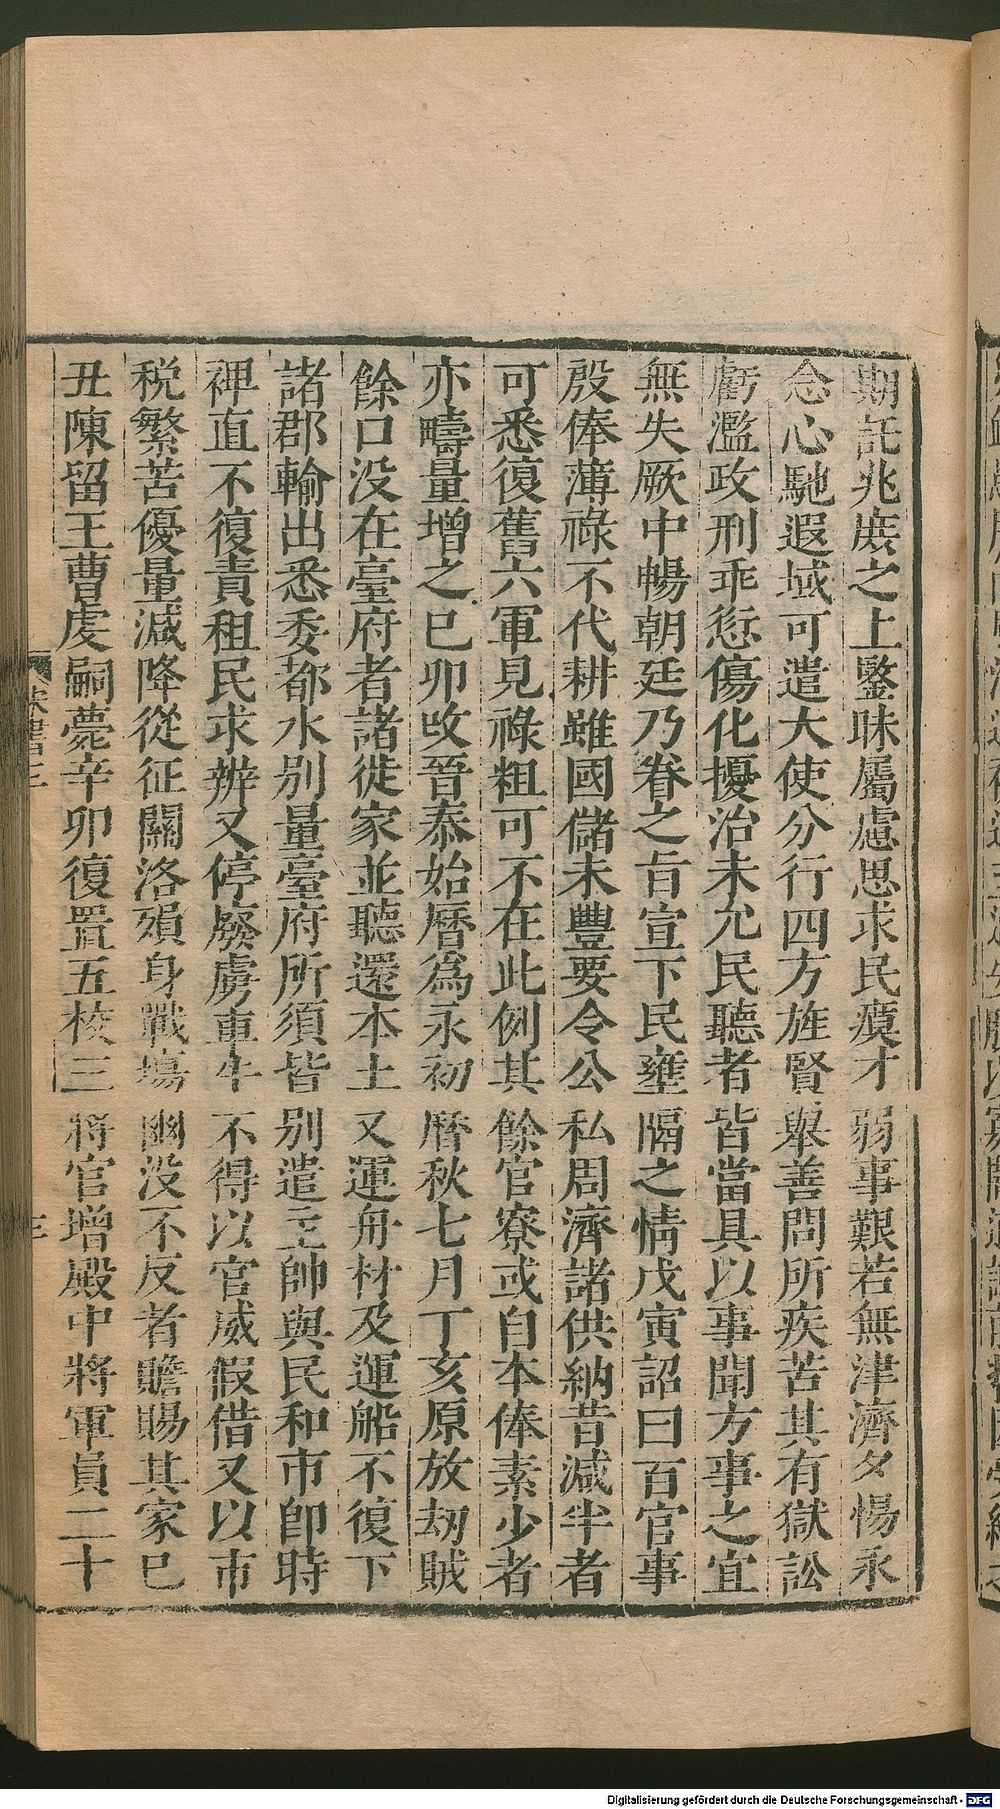 期託兆庶之上鑒昧屬慮思求民瘼才弱事艱若無津濟夕惕永
念心馳遐域可遣大使分行四方旌賢舉善問所疾苦其有獄訟
虧濫政刑乖愆傷化擾治未允民聽者皆當具以事聞方事之宜
無失厥中暢朝廷乃眷之旨宣下民壅隔之情戊寅詔曰百官事
殷俸薄祿不代耕雖國儲未豐要令公私周濟諸供納昔減半者
可悉復舊六軍見祿粗可不在此例其餘官寮或自本俸素少者
亦疇量增之已卯改晉泰始曆爲永初曆秋七月丁亥原放劫賊
餘口没在臺府者諸徙家並聽還本土又運舟材及運船不復下
諸郡輸出悉委都水别量臺府所須皆别遣主帥與民和市即時
裨直不復責租民求辨又停廢虜車牛不得以官威假借又以市
税繁苦優量減降從征關洛殞身戰塲幽没不反者贍賜其家已
丑陳留王曹虔嗣薨辛卯復置五校三將官增殿中將軍員二十
宋書三
三
Digitalisierung gefördert durch die Deutsche Forschungsgemeinschaft - DFG